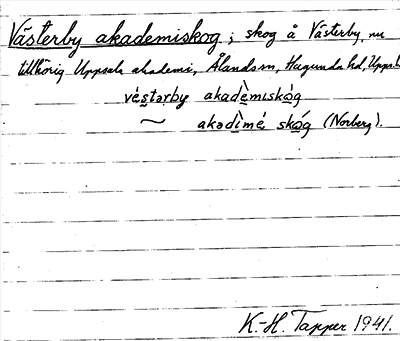 Västerby akademiskog; skog å Västerby, nu
tillhörig Uppsala akademi, Ålands sn, Hagunda hd, Upps.l
véstərby akadèmiskóg
~ akədìmé skóg (Norberg).
K.-H. Tapper 1941.